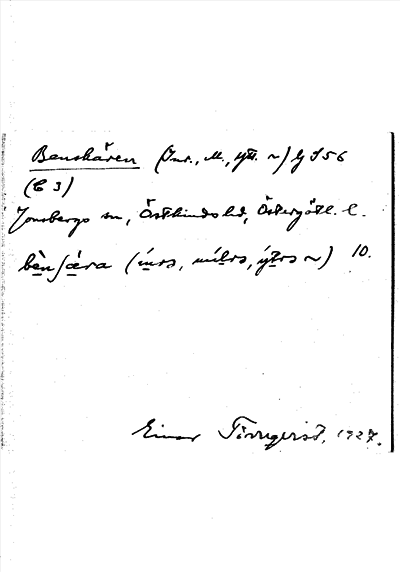 Benskären (Inr., M., Ytt. ~) Gj S 56
(C 3)
Jonsbergs sn, Östkinds hd, Östergötl. l.
bènʃæ̀ra (ínrs, mílrs, ýtrs ~) 10.
Einar Törngerst, 1927.